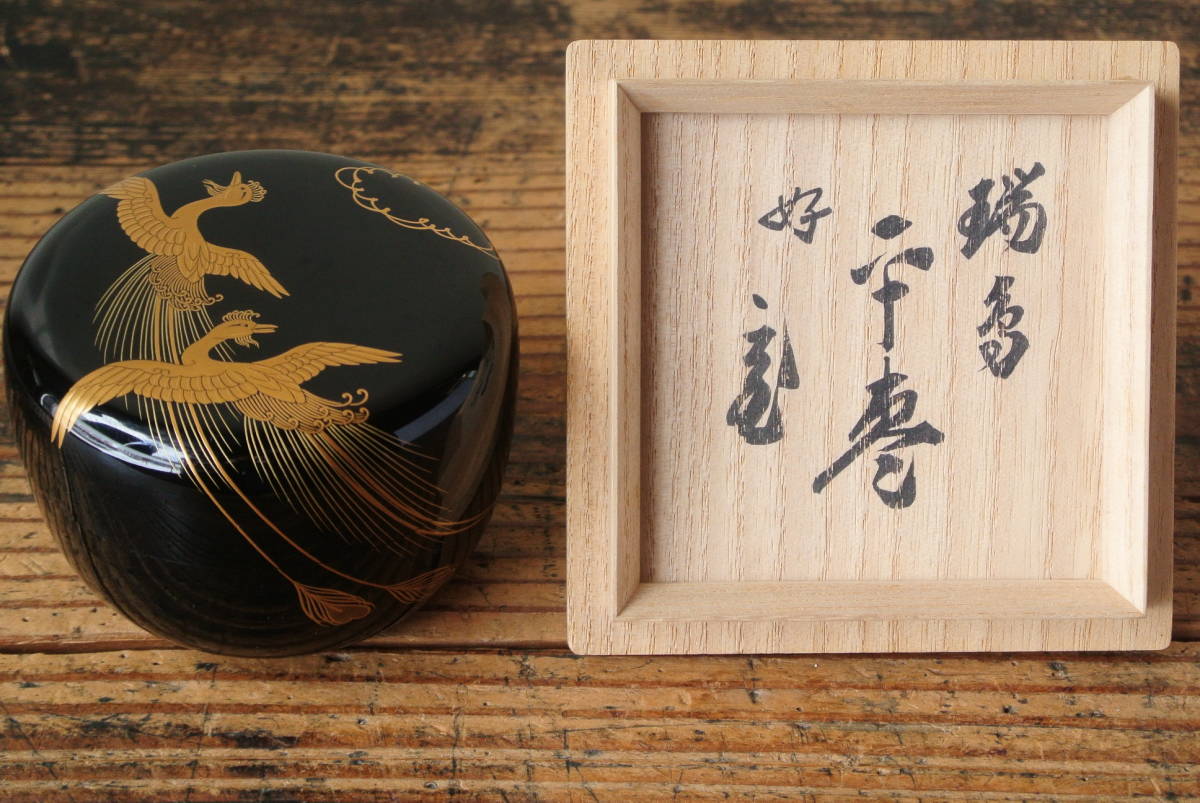 瑞鳥
平棗
好